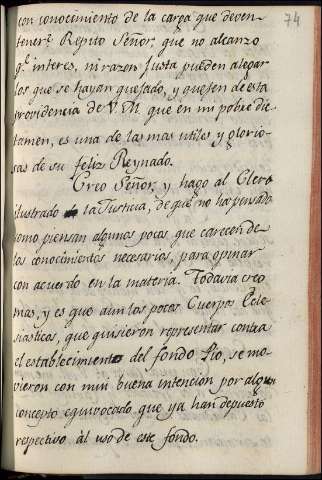 74
con conocimiento de la carga que deven
tener.ˢ Repito Señor, que no alcanzo
q.ᵉ interes, ni razon justa pueden alegar
los que se hayan quejado, y quejen de esta
providencia de V.M. que en mi pobre dic-
tamen, es una de las mas utiles y glorio-
sas de su feliz Reynado.
Creo Señor, y hago al Clero
ilustrado la Justicia, de que no ha pensado
como piensan algunos pocos que carecen de
los conocimientos necesarios, para opinar
con acuerdo en la materia. Todavia creo
mas, y es que aun los pocos Cuerpos Ecle-
siasticos, que quisieron representar contra
el establecimiento del fondo Pio, se mo-
vieron con mui buena intención por algun
concepto equivocado que ya han depuesto
respectivo al uso de este fondo.